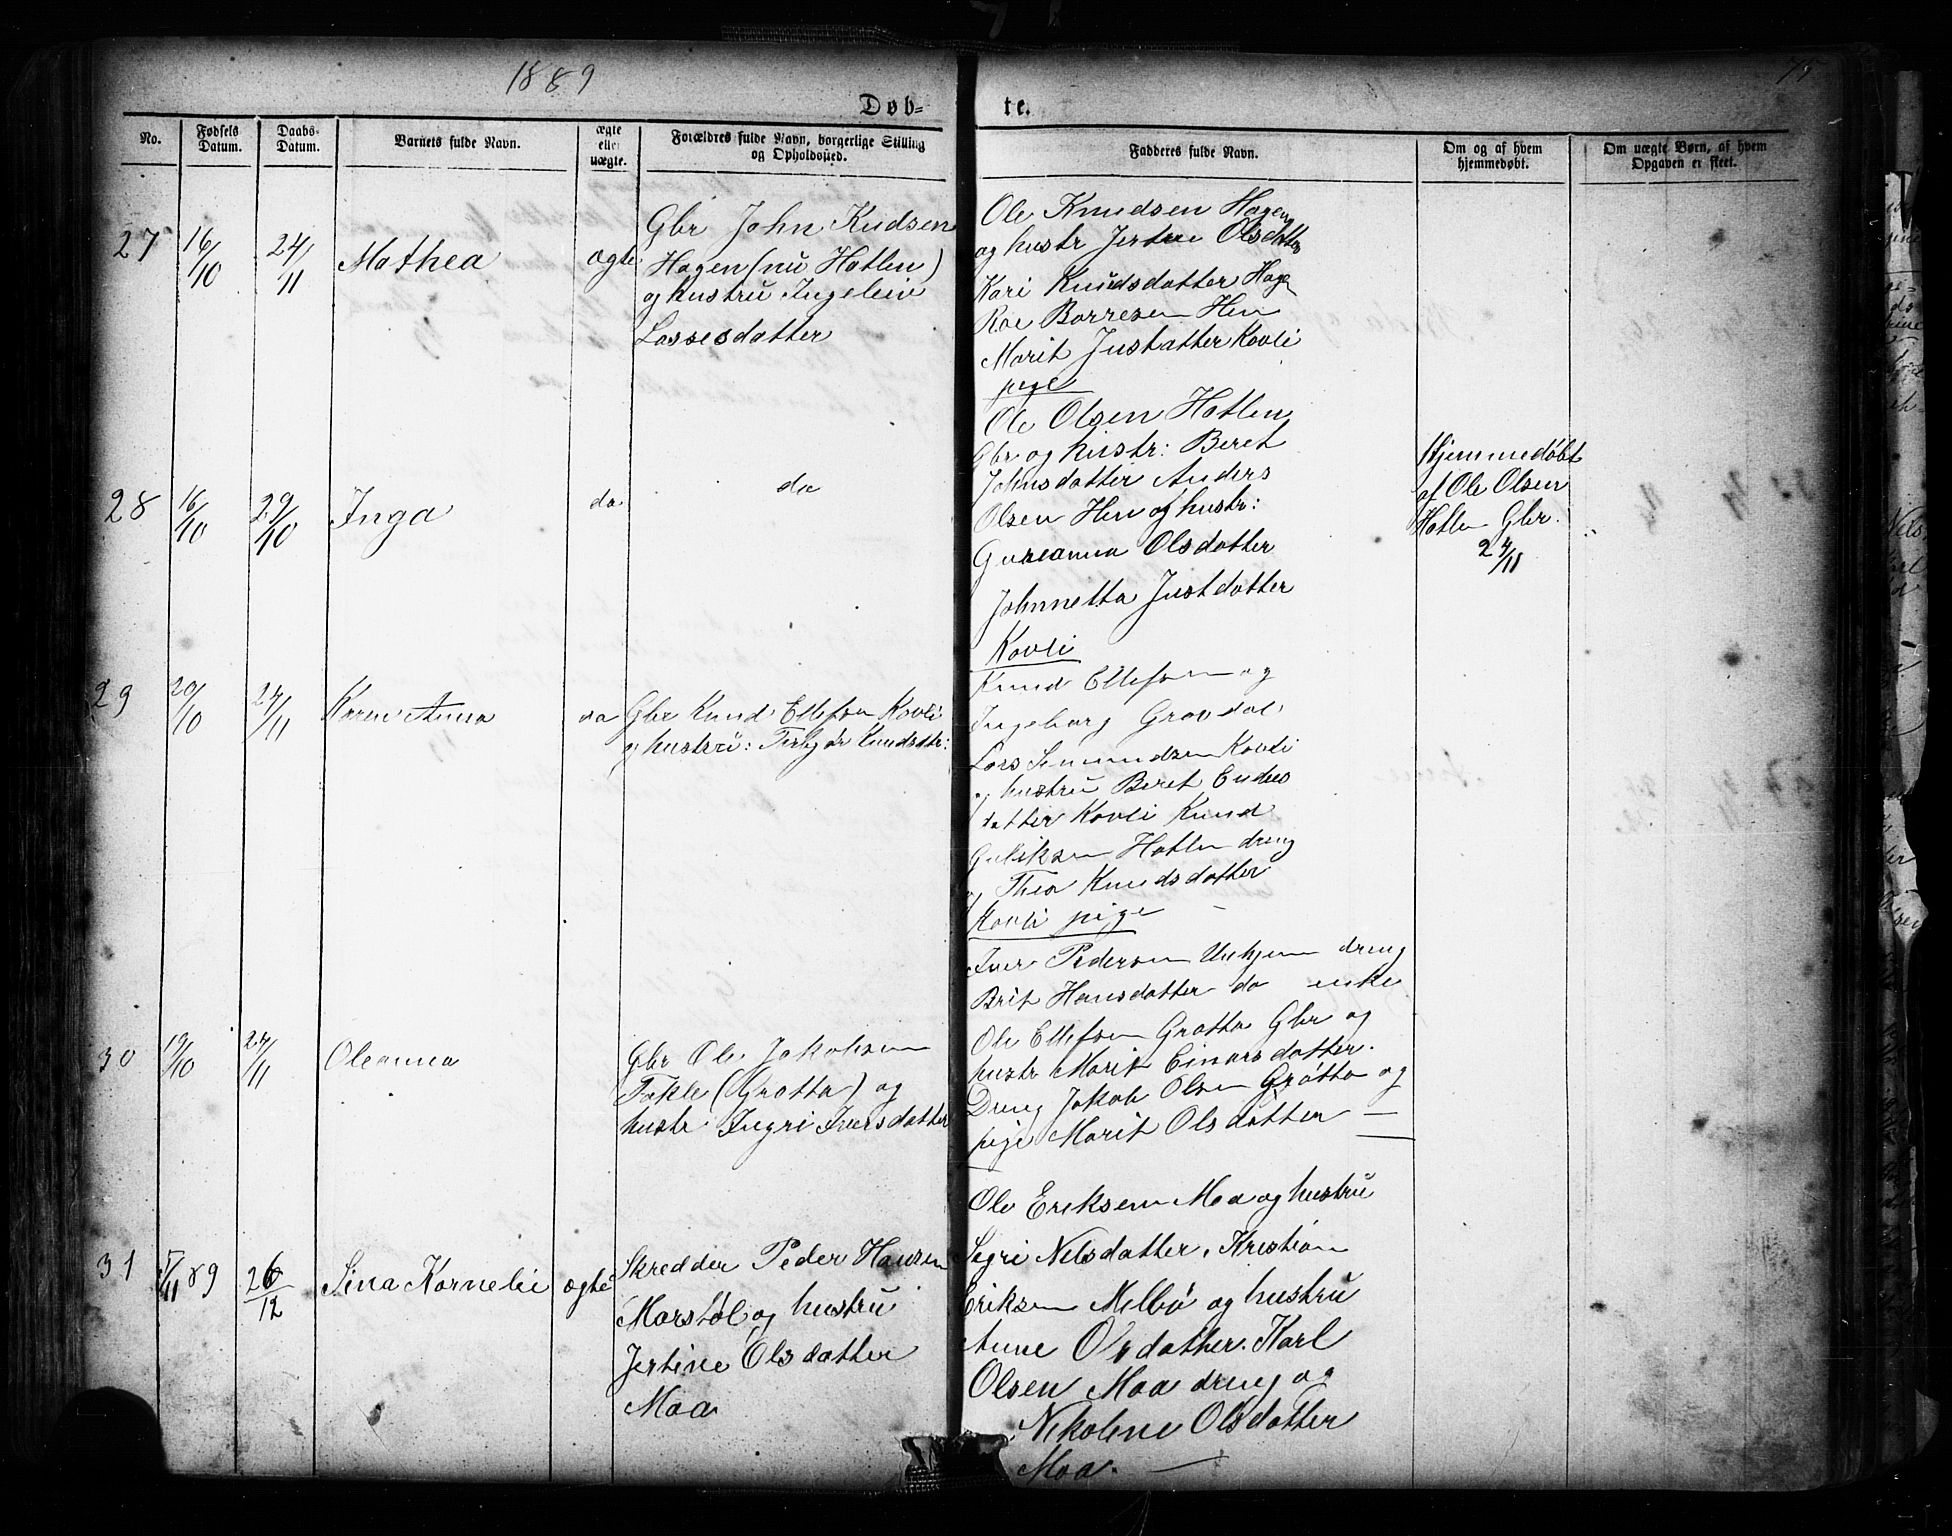 1889
75
Døb-
te.
No.
Fødsels Datum.
Daabs-Datum.
Barnets fulde Navn.
ægte eller uægte.
Forældres fulde Navn, borgerlige Stilling og Opholdssted.
Fadderes fulde Navn.
Om og af hvem hjemmedøbt.
Om uægte Børn, af hvem Opgaven er skeet.
27
16/10
24/11
Mathea
ægte
Gbr John Kudsen
Hagen (nu Hatlen)
og hustru Ingeleiv
Lassesdatter
Ole Knudsen Hagen
og hustr Jertrue Olsdatter
Kari Knudsdatter Hage
Roe Børresen Hen
Marit Justatter Kavli
pige
28
16/10
29/10
Inga
do
do
Ole Olsen Hatlen
Gbr og hustr: Beret
Johnsdatter Anders
Olsen Hen og hustr:
Gureanna Olsdatter
Johnnetta Justdatter
Kavli
Hjemmedøbt
af Ole Olsen
Hatle Gbr.
24/11
29
20/10
24/11
Karen Anna
do
Gbr Knud Ellefsen Kavli
og hustru: Knudsdtr:
Knud Ellefsen og
Ingeborg Grovdal
Lars Simundsen Kavli
og hustru Beret Endres
datter Kavli Knud
Guliksen Hatlen dreng
og Thea Knudsdatter
Kavli pige
30
19/10
24/11
Oleanna
Gbr Ole Jakobsen
Tokle (Grøtta) og
hustr Ingri Iversdatter
Iver Pedersen Unhjem dreng
Brit Hansdatter do enke
Ole Ellefsen Grøtta Gbr og
hustr Marit Einarsdatter.
Dreng Jakob Olsen Grøtta og
pige Marit Olsdatter —
31
5/11 89
26/12
Sina Kornelie
ægte
Skredder Peder Hansen
Marstøl og hustru
Jertine Olsdatter
Moa
Ole Eriksen Moa og hustru
Segri Nelsdatter, Kristian
Eriksen Melbø og hustru
Anne Olsdatter. Karl
Olsen Moa dreng og
Nikoline Olsdatter
Moa. —